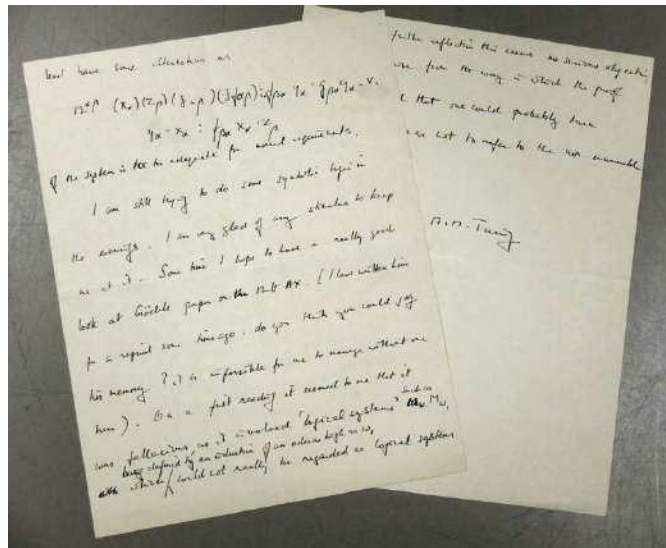 must have some alteration as
yα = xα : fβα xα = zβ
if the system is to be adequate for normal requirements.
I am still trying to do some symbolic logic in
the evenings. I am very glad of any stimulus to keep
me at it. Some time I hope to have a really good
look at Gödel's paper on the Mult Ax. (I have written him
for a reprint some time ago. do you think you could jog
his memory? it is impossible for me to manage without one
here). On a first reading it seemed to me that it
was fallacious as it involved 'logical systems' such as Mω,
being defined by an induction of an order as high as ω,
which could not really be regarded as logical systems
further reflection this seems no serious objection
from the way in which the proof
that one could probably turn
as not to refer to the non enumerable
A.M. Turing